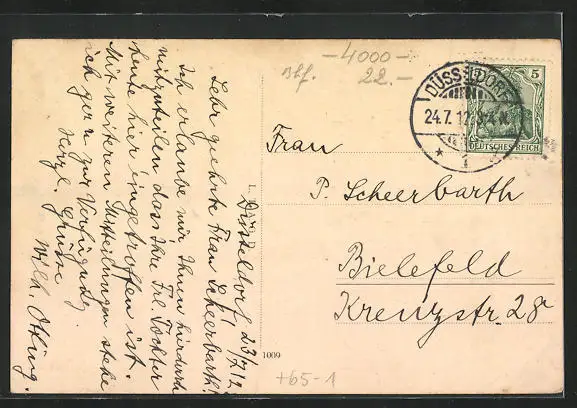 -4000-
Bhf. 22.-
DÜSSELDORF
24.7.12
* 1 *
5
DEUTSCHES REICH
Frau
P. Scheerbarth
Bielefeld
Kreuzstr. 28a
Düsseldorf 23/7 12
Sehr geehrte Frau Scheerbarth!
Ich erlaube mir Ihnen hierdurch
mitzuteilen dass Ihre Frl. Tochter
heute hier eingetroffen ist.
Mit weiteren Mitteilungen stehe
ich gern zur Verfügung
Herzl. Grüsse
Wilh.
1009
+65-1